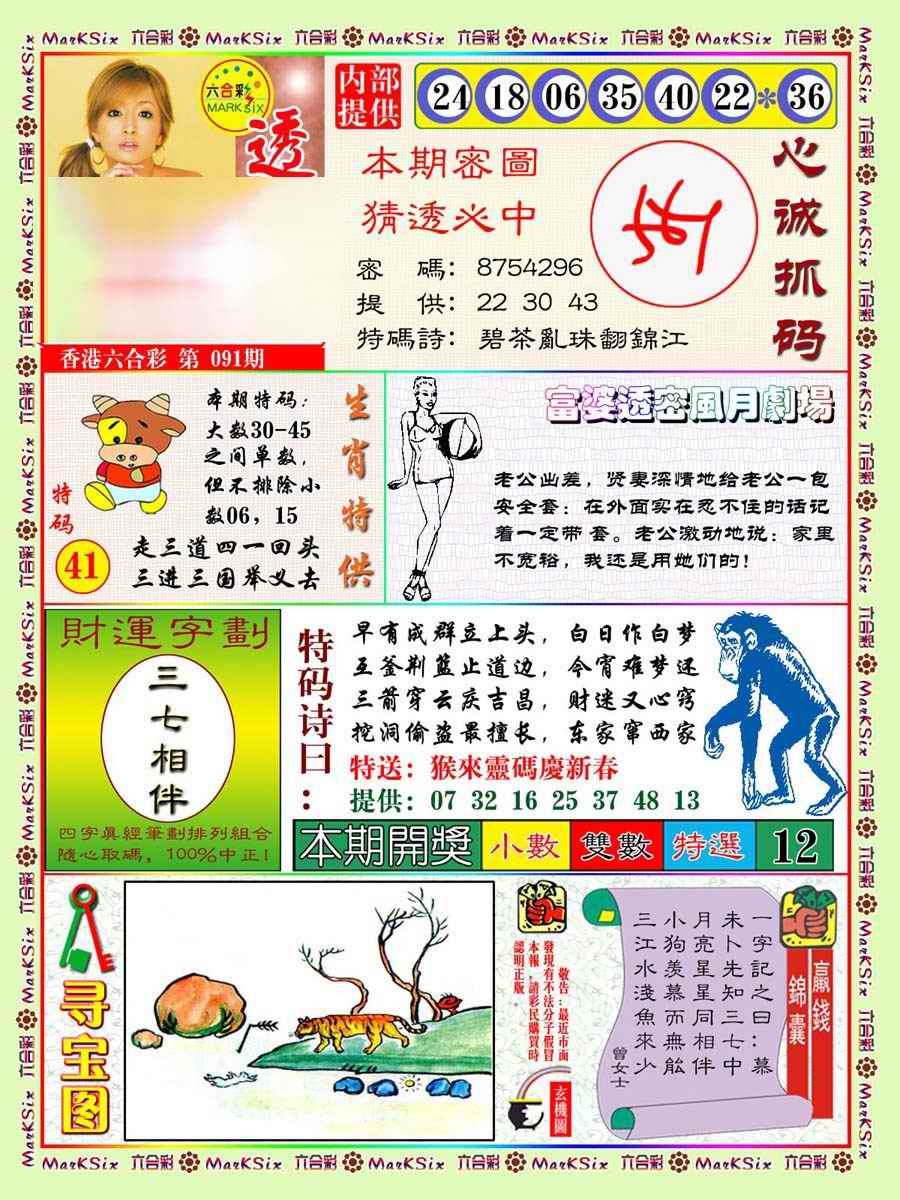 MarKSix 六合彩 MarKSix 六合彩 MarKSix 六合彩 MarKSix 六合彩 MarKSix 六合彩
六合彩
MARK SIX
透
内部
提供
24 18 06 35 40 22 * 36
本期密圖
猜透必中
密 碼: 8754296
提 供: 22 30 43
特碼詩: 碧茶亂珠翻錦江
心诚抓码
香港六合彩 第 091期
本期特码:
大数30-45
之间单数,
但不排除小
数06，15
走三道四一回头
三进三国举义去
特码
41
生肖特供
富婆透密風月劇場
老公出差，贤妻深情地给老公一包
安全套：在外面实在忍不住的话记
着一定带 套。老公激动地说：家里
不宽裕，我还是用她们的！
財運字劃
三七相伴
四字真經筆劃排列組合
隨心取碼，100%中正！
特码诗曰：
早有成群立上头，白日作白梦
五釜荆蓝止道边，今宵难梦还
三箭穿云庆吉昌，财迷又心窍
挖洞偷盗最擅长，东家窜西家
特送：猴來靈碼慶新春
提供：07 32 16 25 37 48 13
本期開獎 小數 雙數 特選 12
寻宝图
敬告:最近市面
發現有不法分子假冒
本報,請彩民購買時
認明正版。
玄機圖
贏錢
錦囊
一字記之曰：慕
未卜先知三七中
月亮星星同相伴
小狗羨慕而無能
三江水淺魚來少
曾女士
MarKSix 六合彩 MarKSix 六合彩 MarKSix 六合彩 MarKSix 六合彩 MarKSix 六合彩